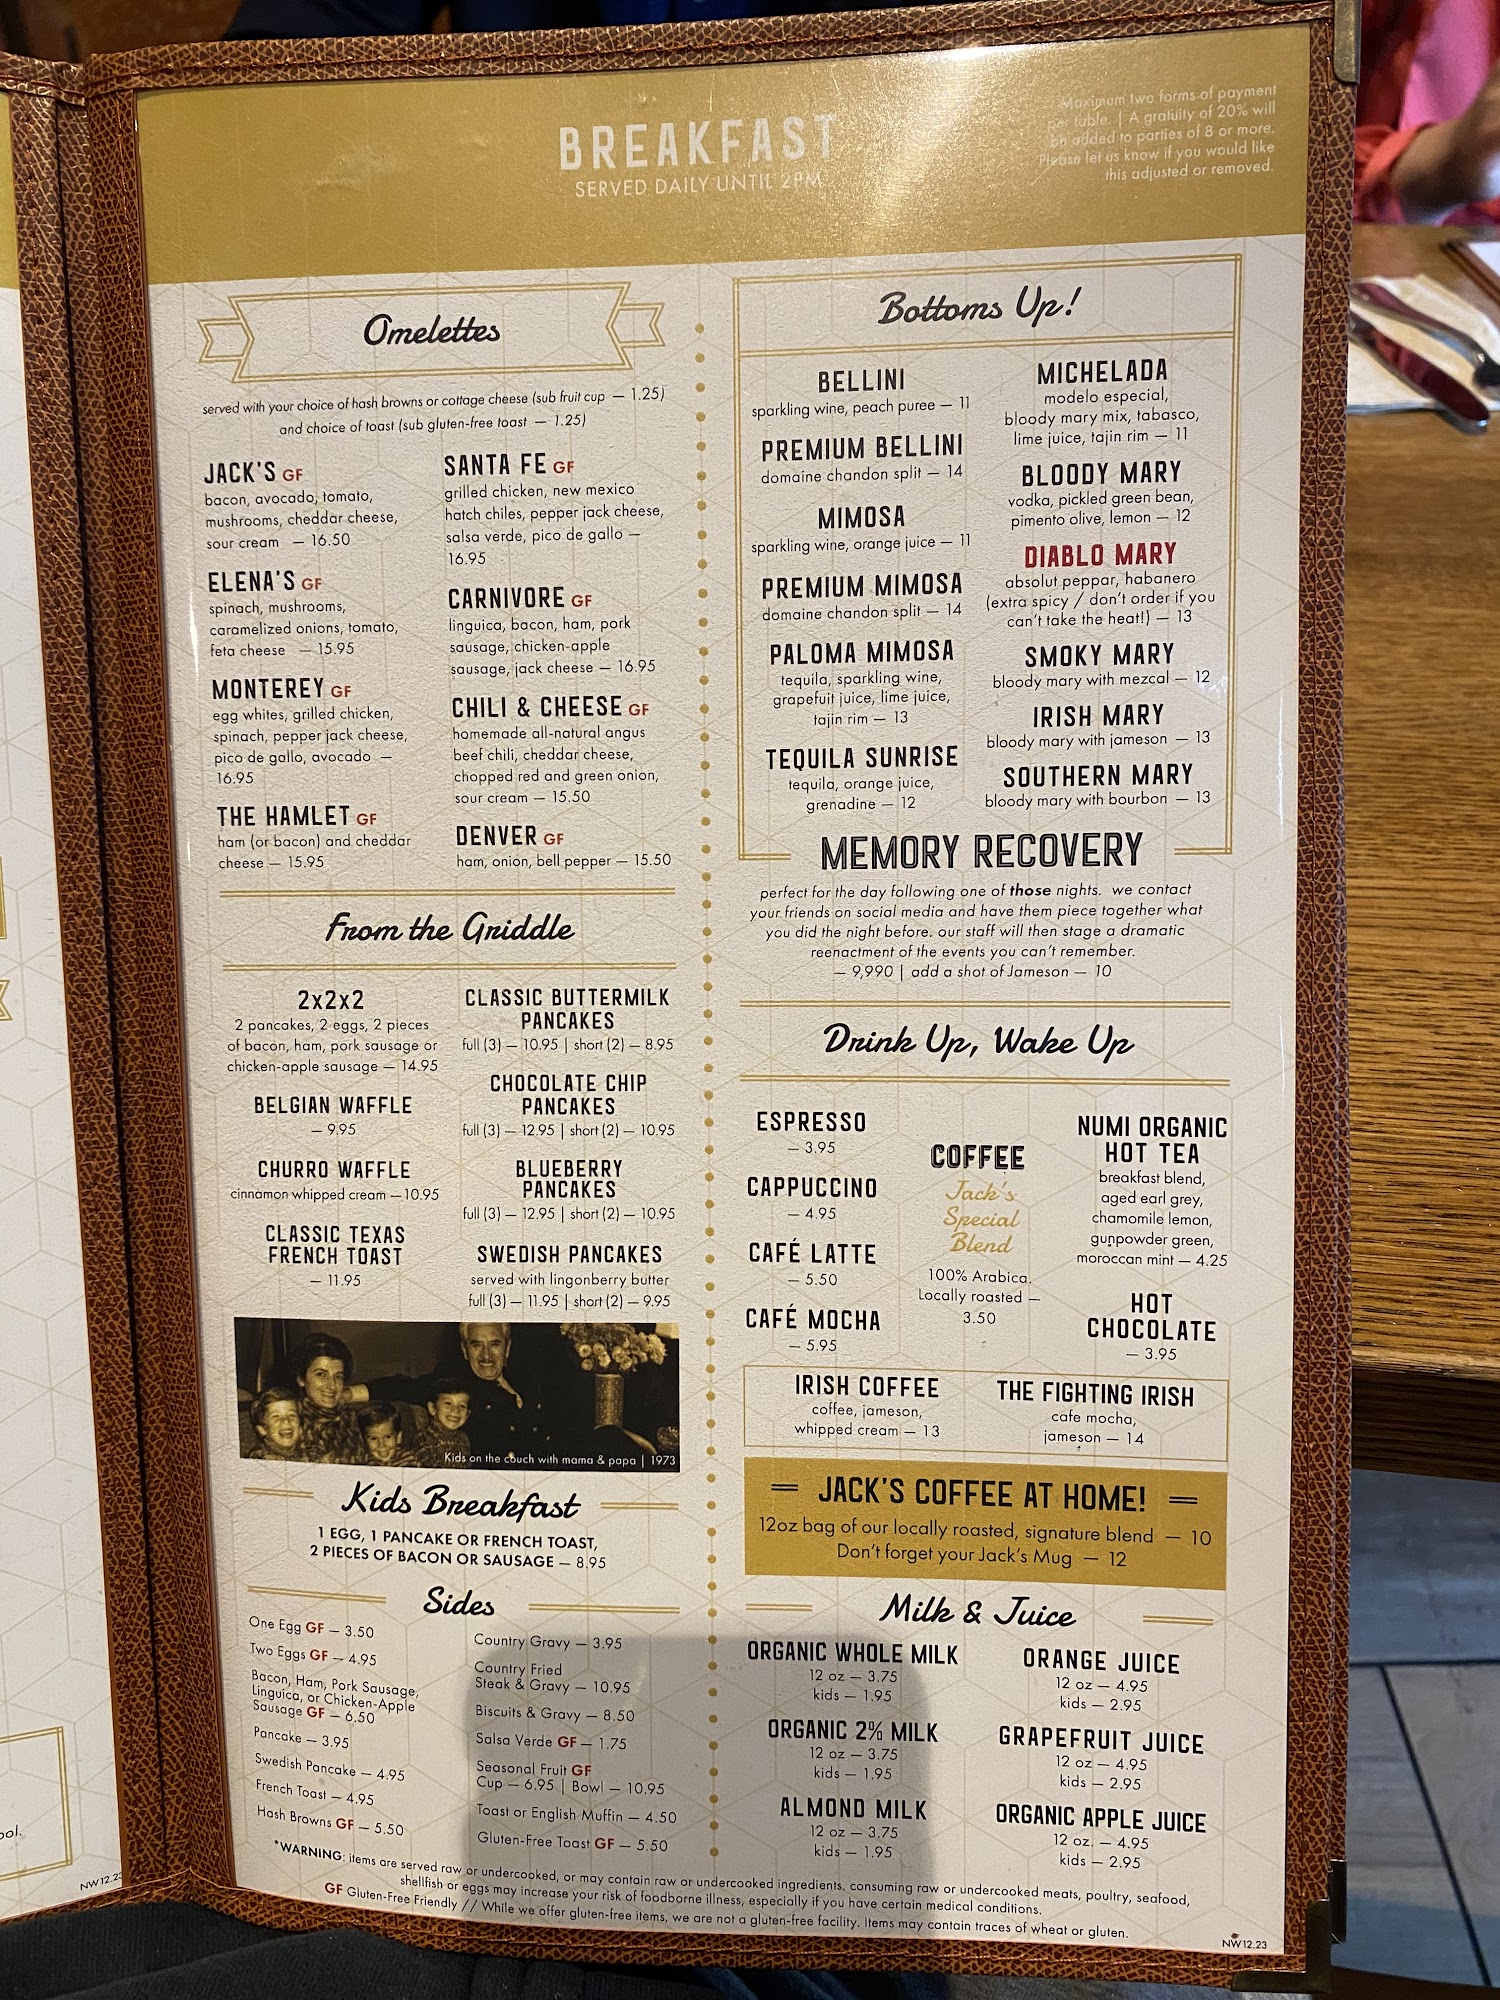 BREAKFAST
SERVED DAILY UNTIL 2PM
Maximum two forms of payment
per table. | A gratuity of 20% will
be added to parties of 8 or more.
Please let us know if you would like
this adjusted or removed.
Omelettes
served with your choice of hash browns or cottage cheese (sub fruit cup — 1.25)
and choice of toast (sub gluten-free toast — 1.25)
JACK'S GF
bacon, avocado, tomato,
mushrooms, cheddar cheese,
sour cream — 16.50
ELENA'S GF
spinach, mushrooms,
caramelized onions, tomato,
feta cheese — 15.95
MONTEREY GF
egg whites, grilled chicken,
spinach, pepper jack cheese,
pico de gallo, avocado —
16.95
THE HAMLET GF
ham (or bacon) and cheddar
cheese — 15.95
SANTA FE GF
grilled chicken, new mexico
hatch chiles, pepper jack cheese,
salsa verde, pico de gallo —
16.95
CARNIVORE GF
linguica, bacon, ham, pork
sausage, chicken-apple
sausage, jack cheese — 16.95
CHILI & CHEESE GF
homemade all-natural angus
beef chili, cheddar cheese,
chopped red and green onion,
sour cream — 15.50
DENVER GF
ham, onion, bell pepper — 15.50
From the Griddle
2x2x2
2 pancakes, 2 eggs, 2 pieces
of bacon, ham, pork sausage or
chicken-apple sausage — 14.95
BELGIAN WAFFLE
— 9.95
CHURRO WAFFLE
cinnamon whipped cream —10.95
CLASSIC TEXAS
FRENCH TOAST
— 11.95
CLASSIC BUTTERMILK
PANCAKES
full (3) — 10.95 | short (2) — 8.95
CHOCOLATE CHIP
PANCAKES
full (3) — 12.95 | short (2) — 10.95
BLUEBERRY
PANCAKES
full (3) — 12.95 | short (2) — 10.95
SWEDISH PANCAKES
served with lingonberry butter
full (3) — 11.95 | short (2) — 9.95
Kids on the couch with mama & papa | 1973
Kids Breakfast
1 EGG, 1 PANCAKE OR FRENCH TOAST,
2 PIECES OF BACON OR SAUSAGE — 8.95
Sides
One Egg GF — 3.50
Two Eggs GF — 4.95
Bacon, Ham, Pork Sausage,
Linguica, or Chicken-Apple
Sausage GF — 6.50
Pancake — 3.95
Swedish Pancake — 4.95
French Toast — 4.95
Hash Browns GF — 5.50
Country Gravy — 3.95
Country Fried
Steak & Gravy — 10.95
Biscuits & Gravy — 8.50
Salsa Verde GF — 1.75
Seasonal Fruit GF
Cup — 6.95 | Bowl — 10.95
Toast or English Muffin — 4.50
Gluten-Free Toast GF — 5.50
Bottoms Up!
BELLINI
sparkling wine, peach puree — 11
PREMIUM BELLINI
domaine chandon split — 14
MIMOSA
sparkling wine, orange juice — 11
PREMIUM MIMOSA
domaine chandon split — 14
PALOMA MIMOSA
tequila, sparkling wine,
grapefuit juice, lime juice,
tajin rim — 13
TEQUILA SUNRISE
tequila, orange juice,
grenadine — 12
MICHELADA
modelo especial,
bloody mary mix, tabasco,
lime juice, tajin rim — 11
BLOODY MARY
vodka, pickled green bean,
pimento olive, lemon — 12
DIABLO MARY
absolut peppar, habanero
(extra spicy / don't order if you
can't take the heat!) — 13
SMOKY MARY
bloody mary with mezcal — 12
IRISH MARY
bloody mary with jameson — 13
SOUTHERN MARY
bloody mary with bourbon — 13
MEMORY RECOVERY
perfect for the day following one of those nights. we contact
your friends on social media and have them piece together what
you did the night before. our staff will then stage a dramatic
reenactment of the events you can't remember.
— 9,990 | add a shot of Jameson — 10
Drink Up, Wake Up
ESPRESSO
— 3.95
CAPPUCCINO
— 4.95
CAFÉ LATTE
— 5.50
CAFÉ MOCHA
— 5.95
COFFEE
Jack's
Special
Blend
100% Arabica.
Locally roasted —
3.50
NUMI ORGANIC
HOT TEA
breakfast blend,
aged earl grey,
chamomile lemon,
gunpowder green,
moroccan mint — 4.25
HOT
CHOCOLATE
— 3.95
IRISH COFFEE
coffee, jameson,
whipped cream — 13
THE FIGHTING IRISH
cafe mocha,
jameson — 14
JACK'S COFFEE AT HOME!
12oz bag of our locally roasted, signature blend — 10
Don't forget your Jack's Mug — 12
Milk & Juice
ORGANIC WHOLE MILK
12 oz — 3.75
kids — 1.95
ORGANIC 2% MILK
12 oz — 3.75
kids — 1.95
ALMOND MILK
12 oz — 3.75
kids — 1.95
ORANGE JUICE
12 oz — 4.95
kids — 2.95
GRAPEFRUIT JUICE
12 oz — 4.95
kids — 2.95
ORGANIC APPLE JUICE
12 oz. — 4.95
kids — 2.95
*WARNING: items are served raw or undercooked, or may contain raw or undercooked ingredients. consuming raw or undercooked meats, poultry, seafood,
shellfish or eggs may increase your risk of foodborne illness, especially if you have certain medical conditions.
GF Gluten-Free Friendly // While we offer gluten-free items, we are not a gluten-free facility. Items may contain traces of wheat or gluten.
NW12.23
NW12.23